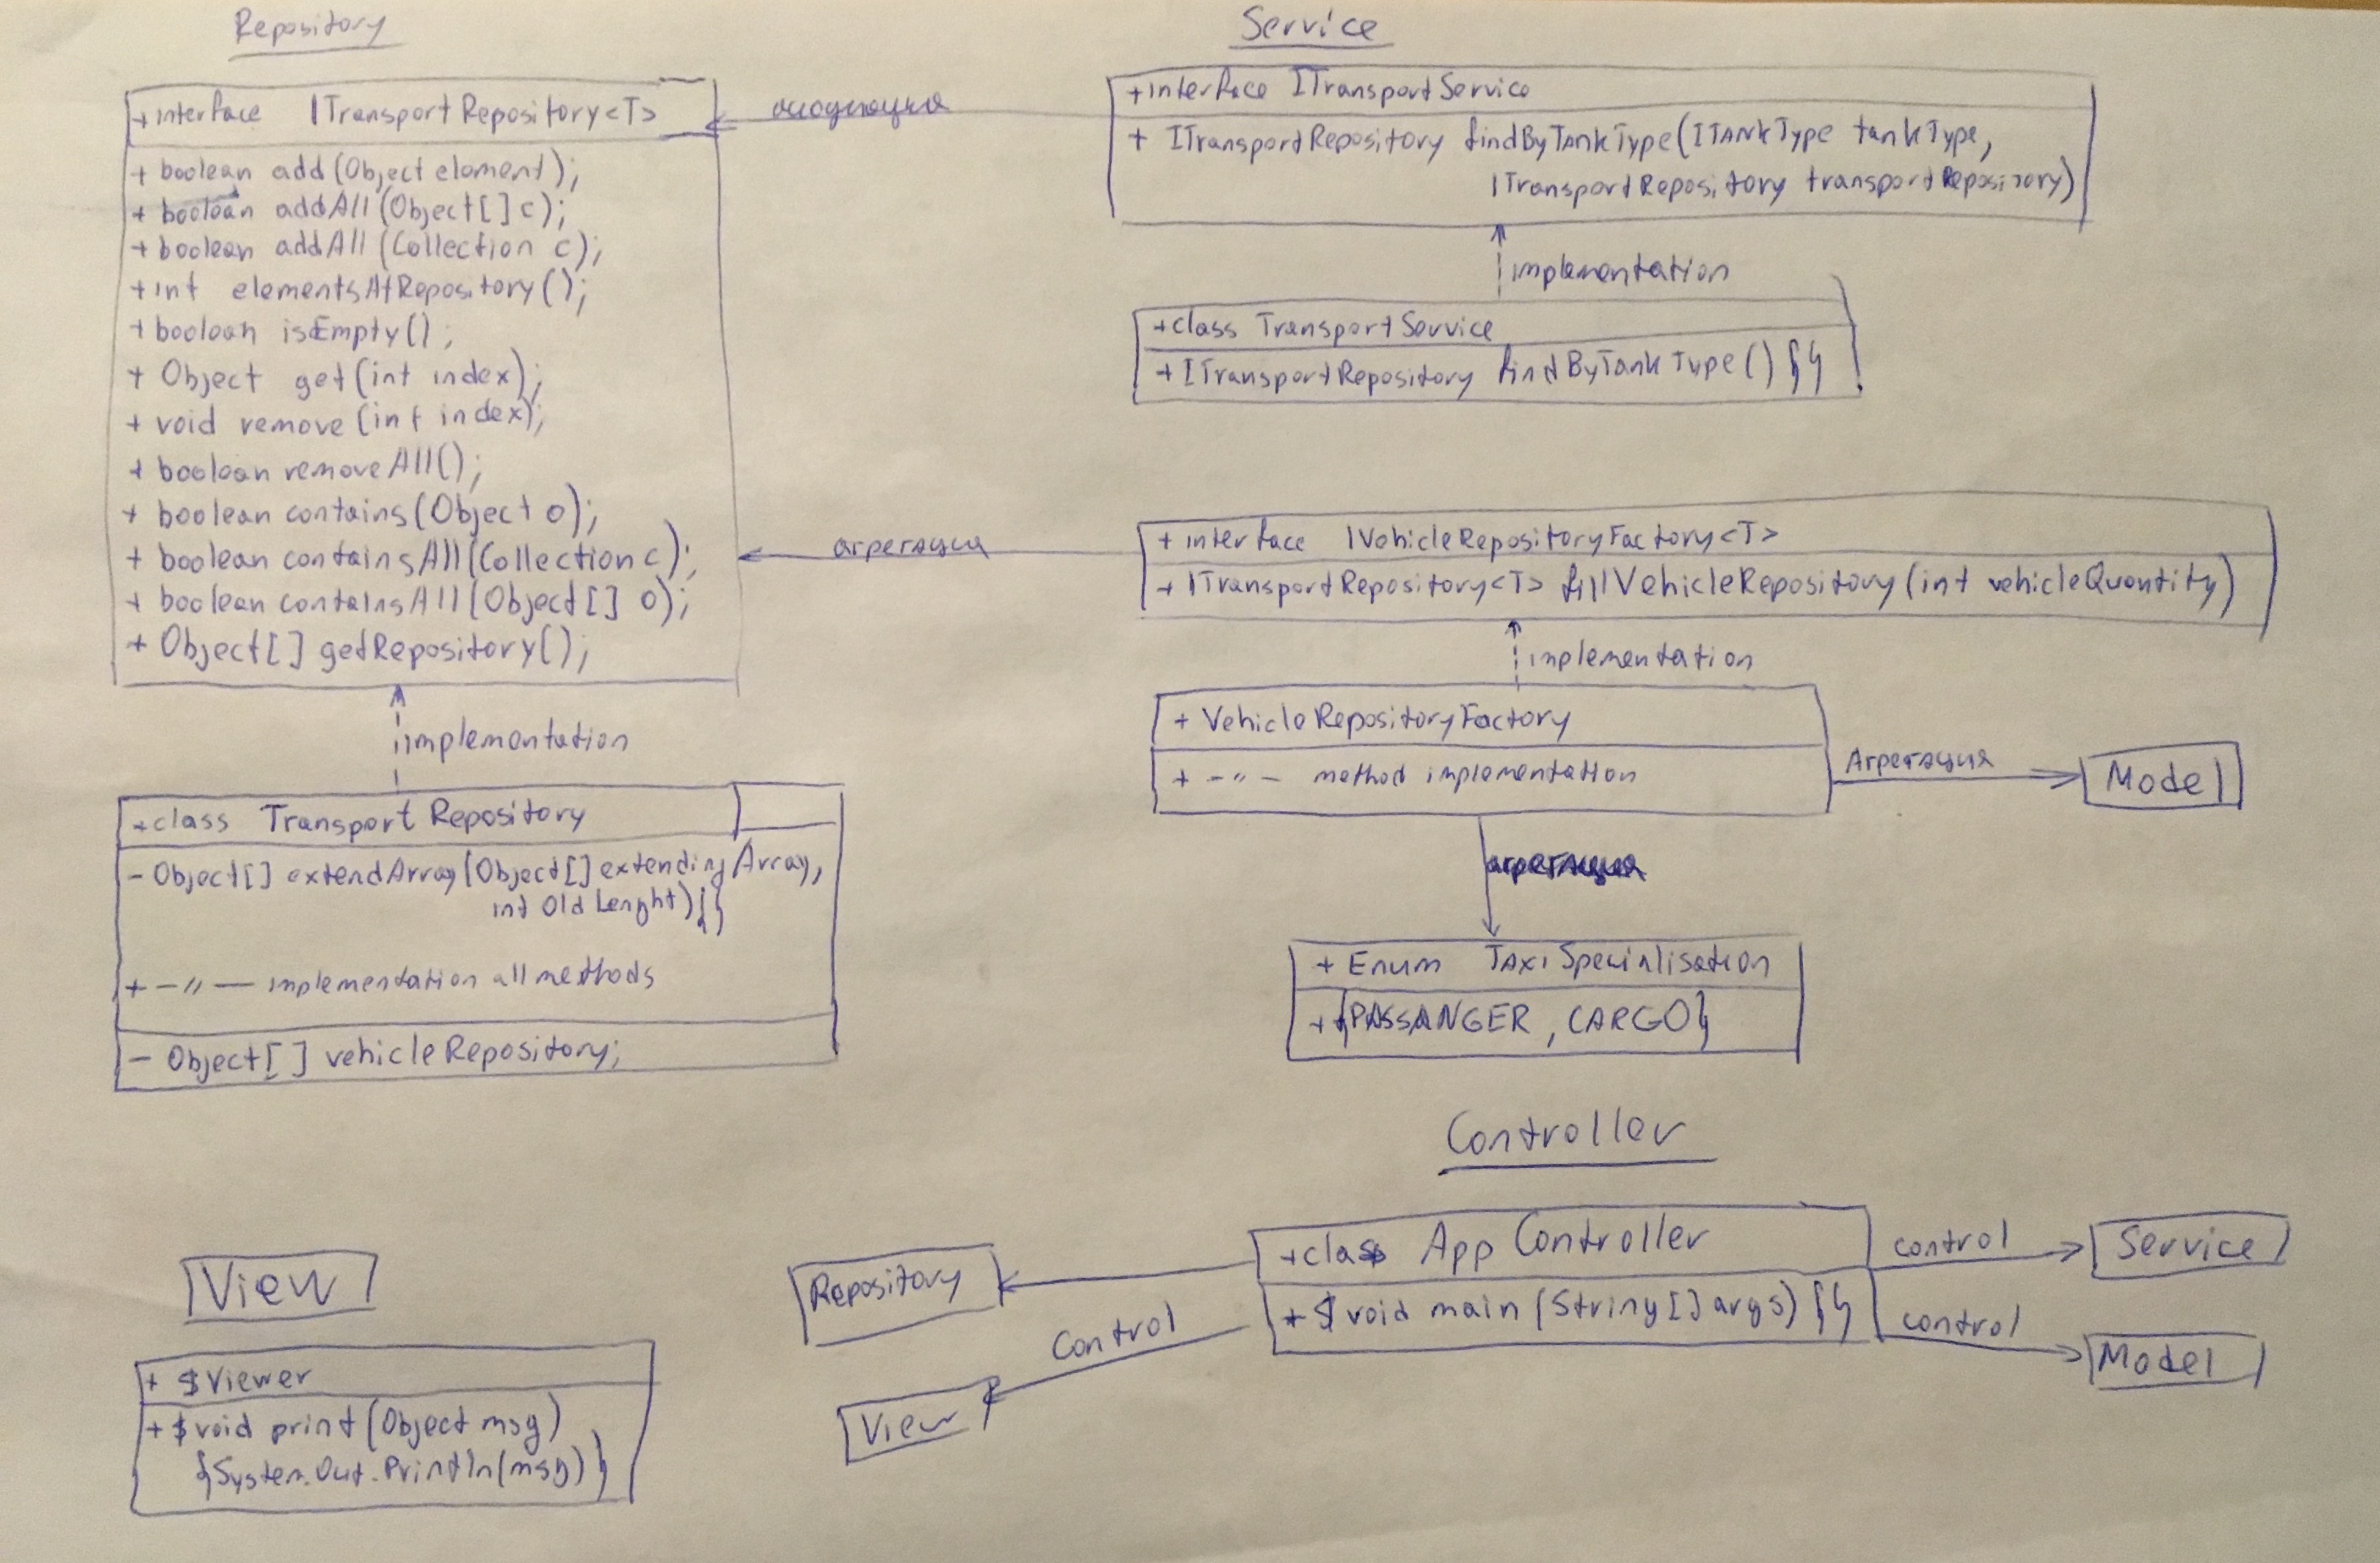 Repository
+ interface ITransportRepository<T>
+ boolean add(Object eloment);
+ boolean addAll(Object[] c);
+ boolean addAll(Collection c);
+ int elementsAtRepository();
+ boolean isEmpty();
+ Object get(int index);
+ void remove(int index);
+ boolean removeAll();
+ boolean contains(Object o);
+ boolean containsAll(Collection c);
+ boolean containsAll(Object[] o);
+ Object[] getRepository();
implementation
+ class Transport Repository
- Object[] extendArray(Object[] extending Array,
int Old Lenght){}
+ -〃- implementation all methods
- Object[] vehicleRepository;
Service
+ interface ITransportService
+ ITransportRepository findByTankType(ITANkType tankType,
ITransportRepository transportRepository)
implementation
+ class TransportService
+ ITransportRepository findByTankType() {}
агрегация
+ interface IVehicleRepositoryFactory<T>
+ ITransportRepository<T> fillVehicleRepository(int vehicleQuantity)
implementation
+ VehicleRepositoryFactory
+ -〃- method implementation
Агрегация
Model
агрегация
+ Enum TAxi Specialisation
+ {PASSANGER, CARGO}
Controller
+ class App Controller
+ $ void main (String[] args) {}
Repository
Control
View
control
Service
control
Model
View
+ $Viewer
+ $ void print(Object msg)
{System.Out.Println(msg)}